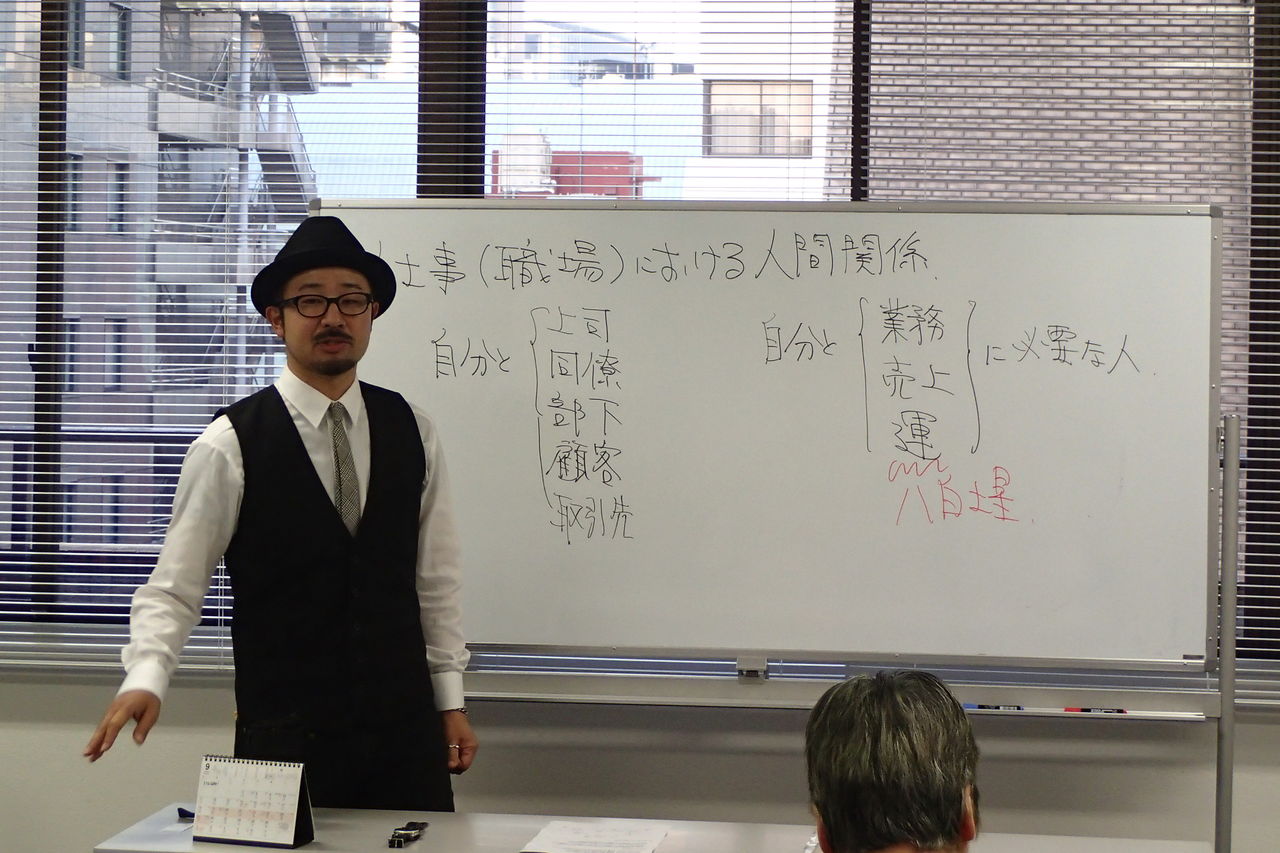 仕事(職場)における人間関係.
自分と
上司
同僚
部下
顧客
取引先
自分と
業務
売上
運
に必要な人.
八白土星
9